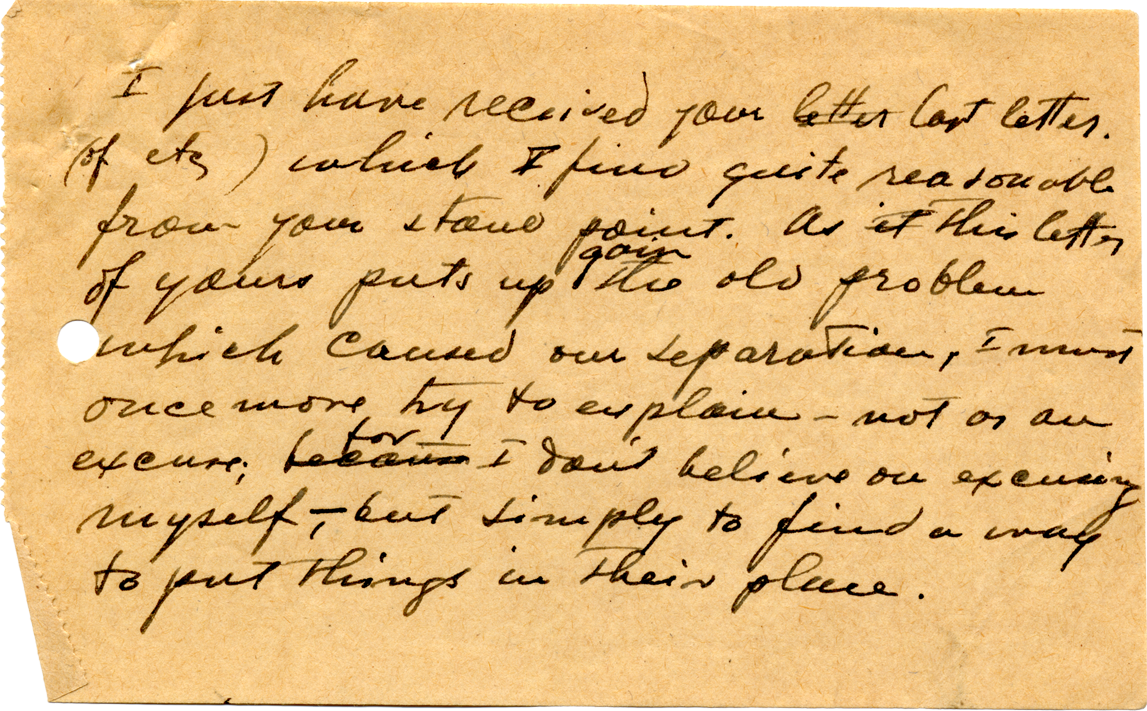 I just have received your letter last letter.
(of etc ) which I find quite reasonable
from your stand point. As it this letter
of yours puts up gain the old problem
which caused our separation, I must
once more try to explain – not as an
excuse; because for I don't believe on excusing
myself –, but simply to find a way
to put things in their place.